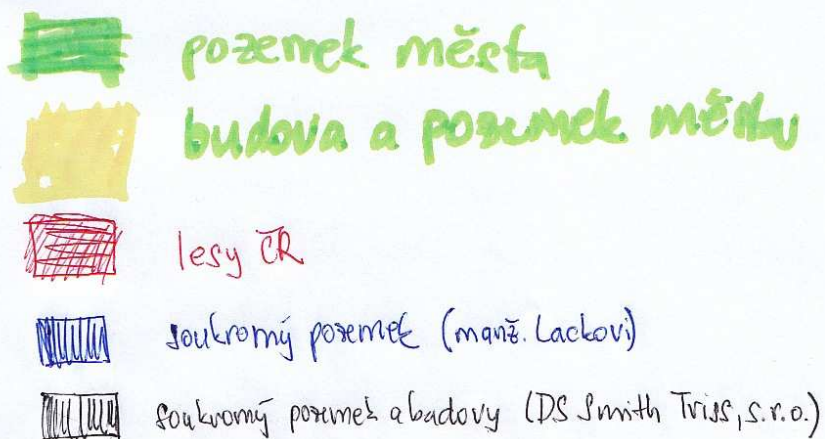 pozemek města
budova a pozemek města
lesy ČR
soukromý pozemek (manž. Lackovi)
soukromý pozemek a budovy (DS Smith Triss, s.r.o.)